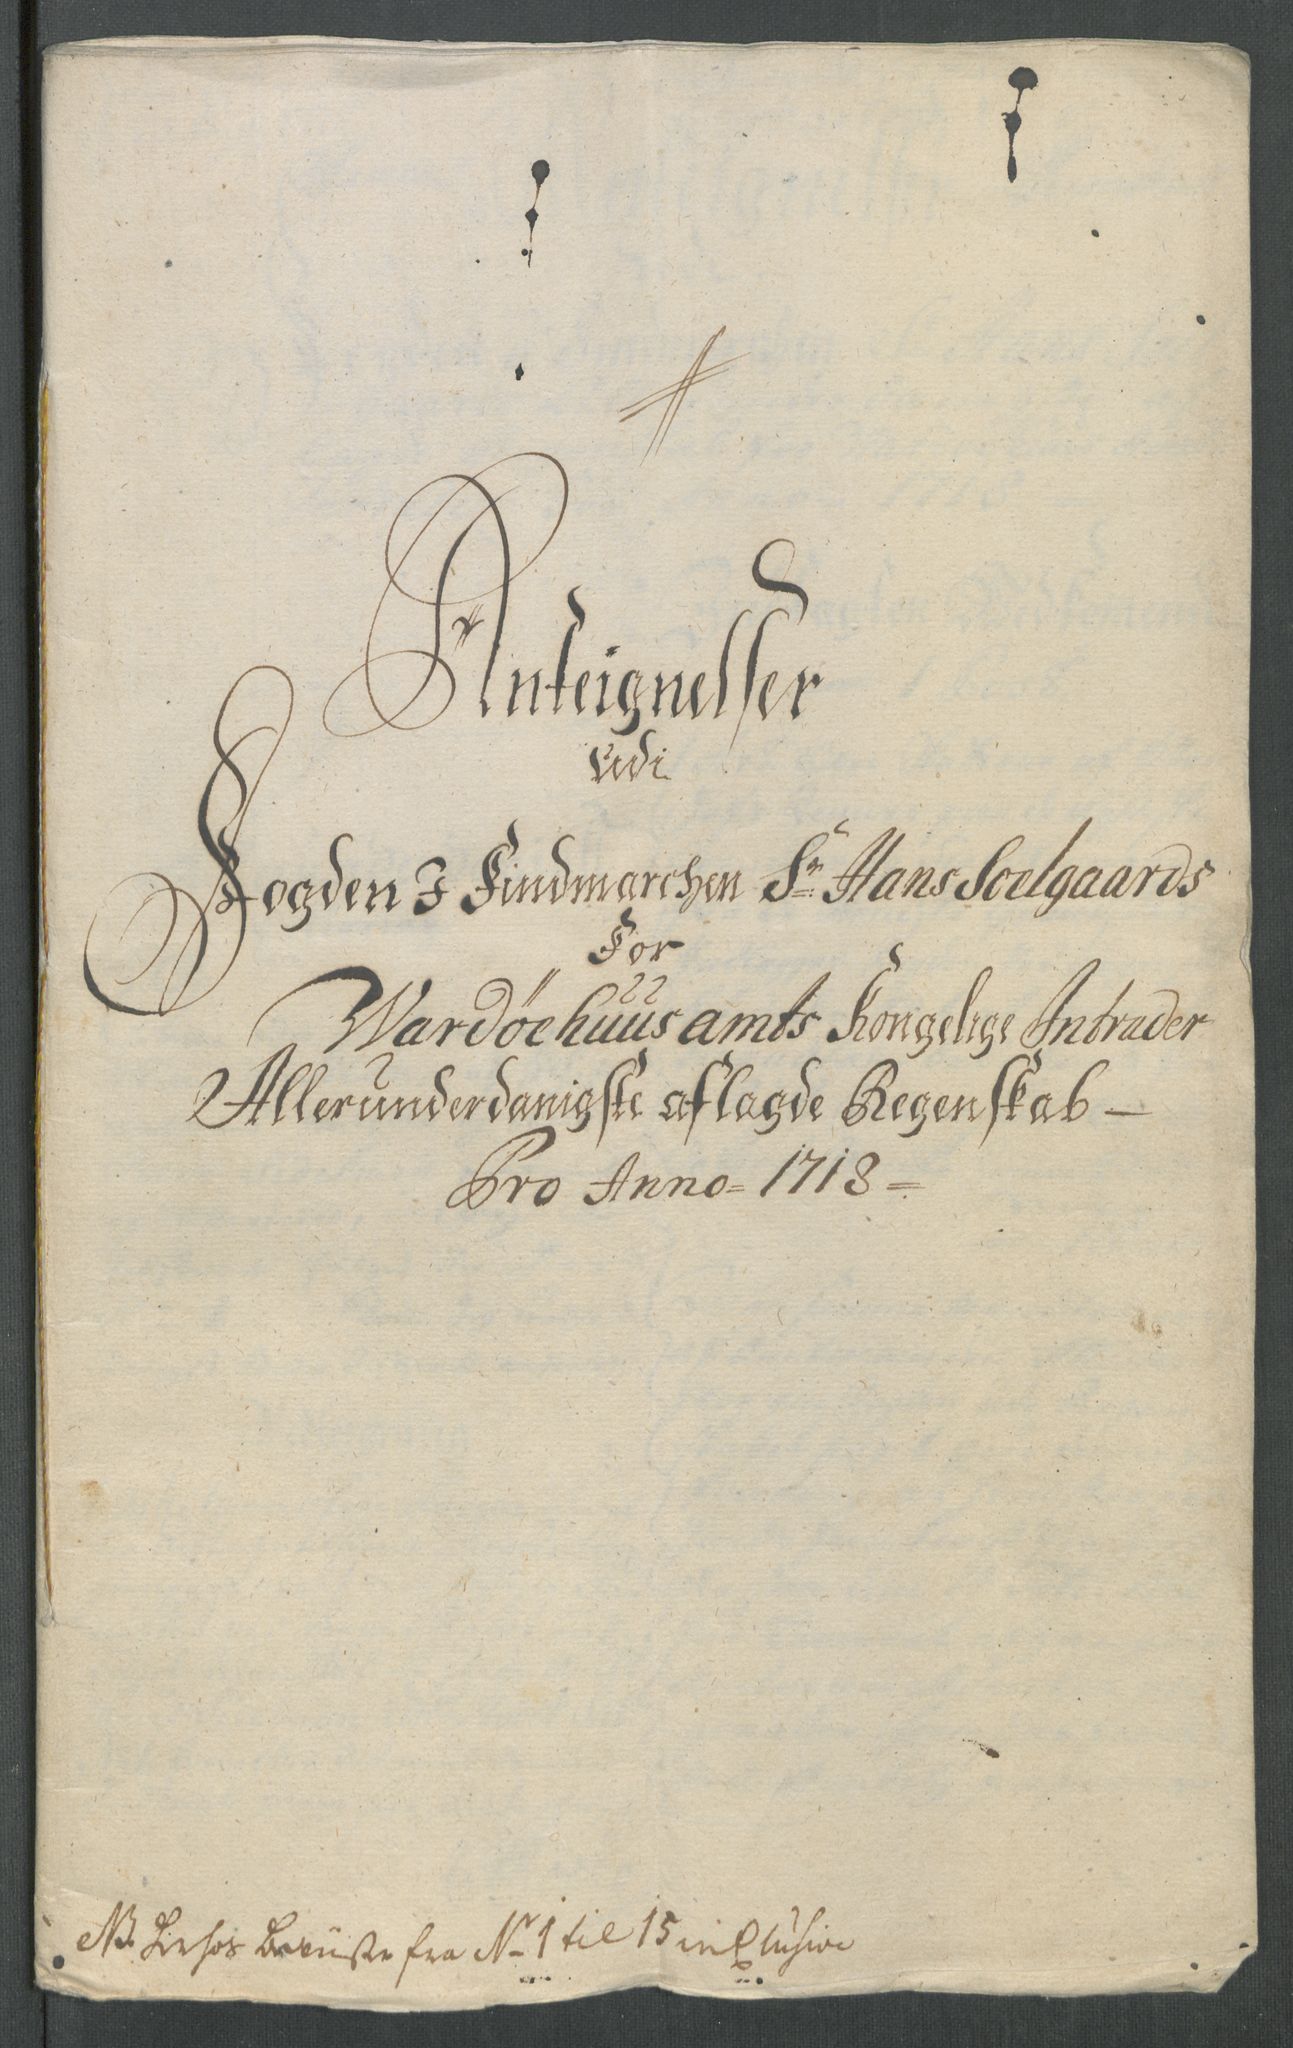 Anteignelser
udi
Fogden I Findmarchen Sr. Hans Soelgaards
For
Wardöehuus amts Kongelige Intrader
Allerunderdanigste aflagde Regenskab –
Pro Anno = 1713 =
NB. herhos beviiste fra No 1 til 15 inclusive